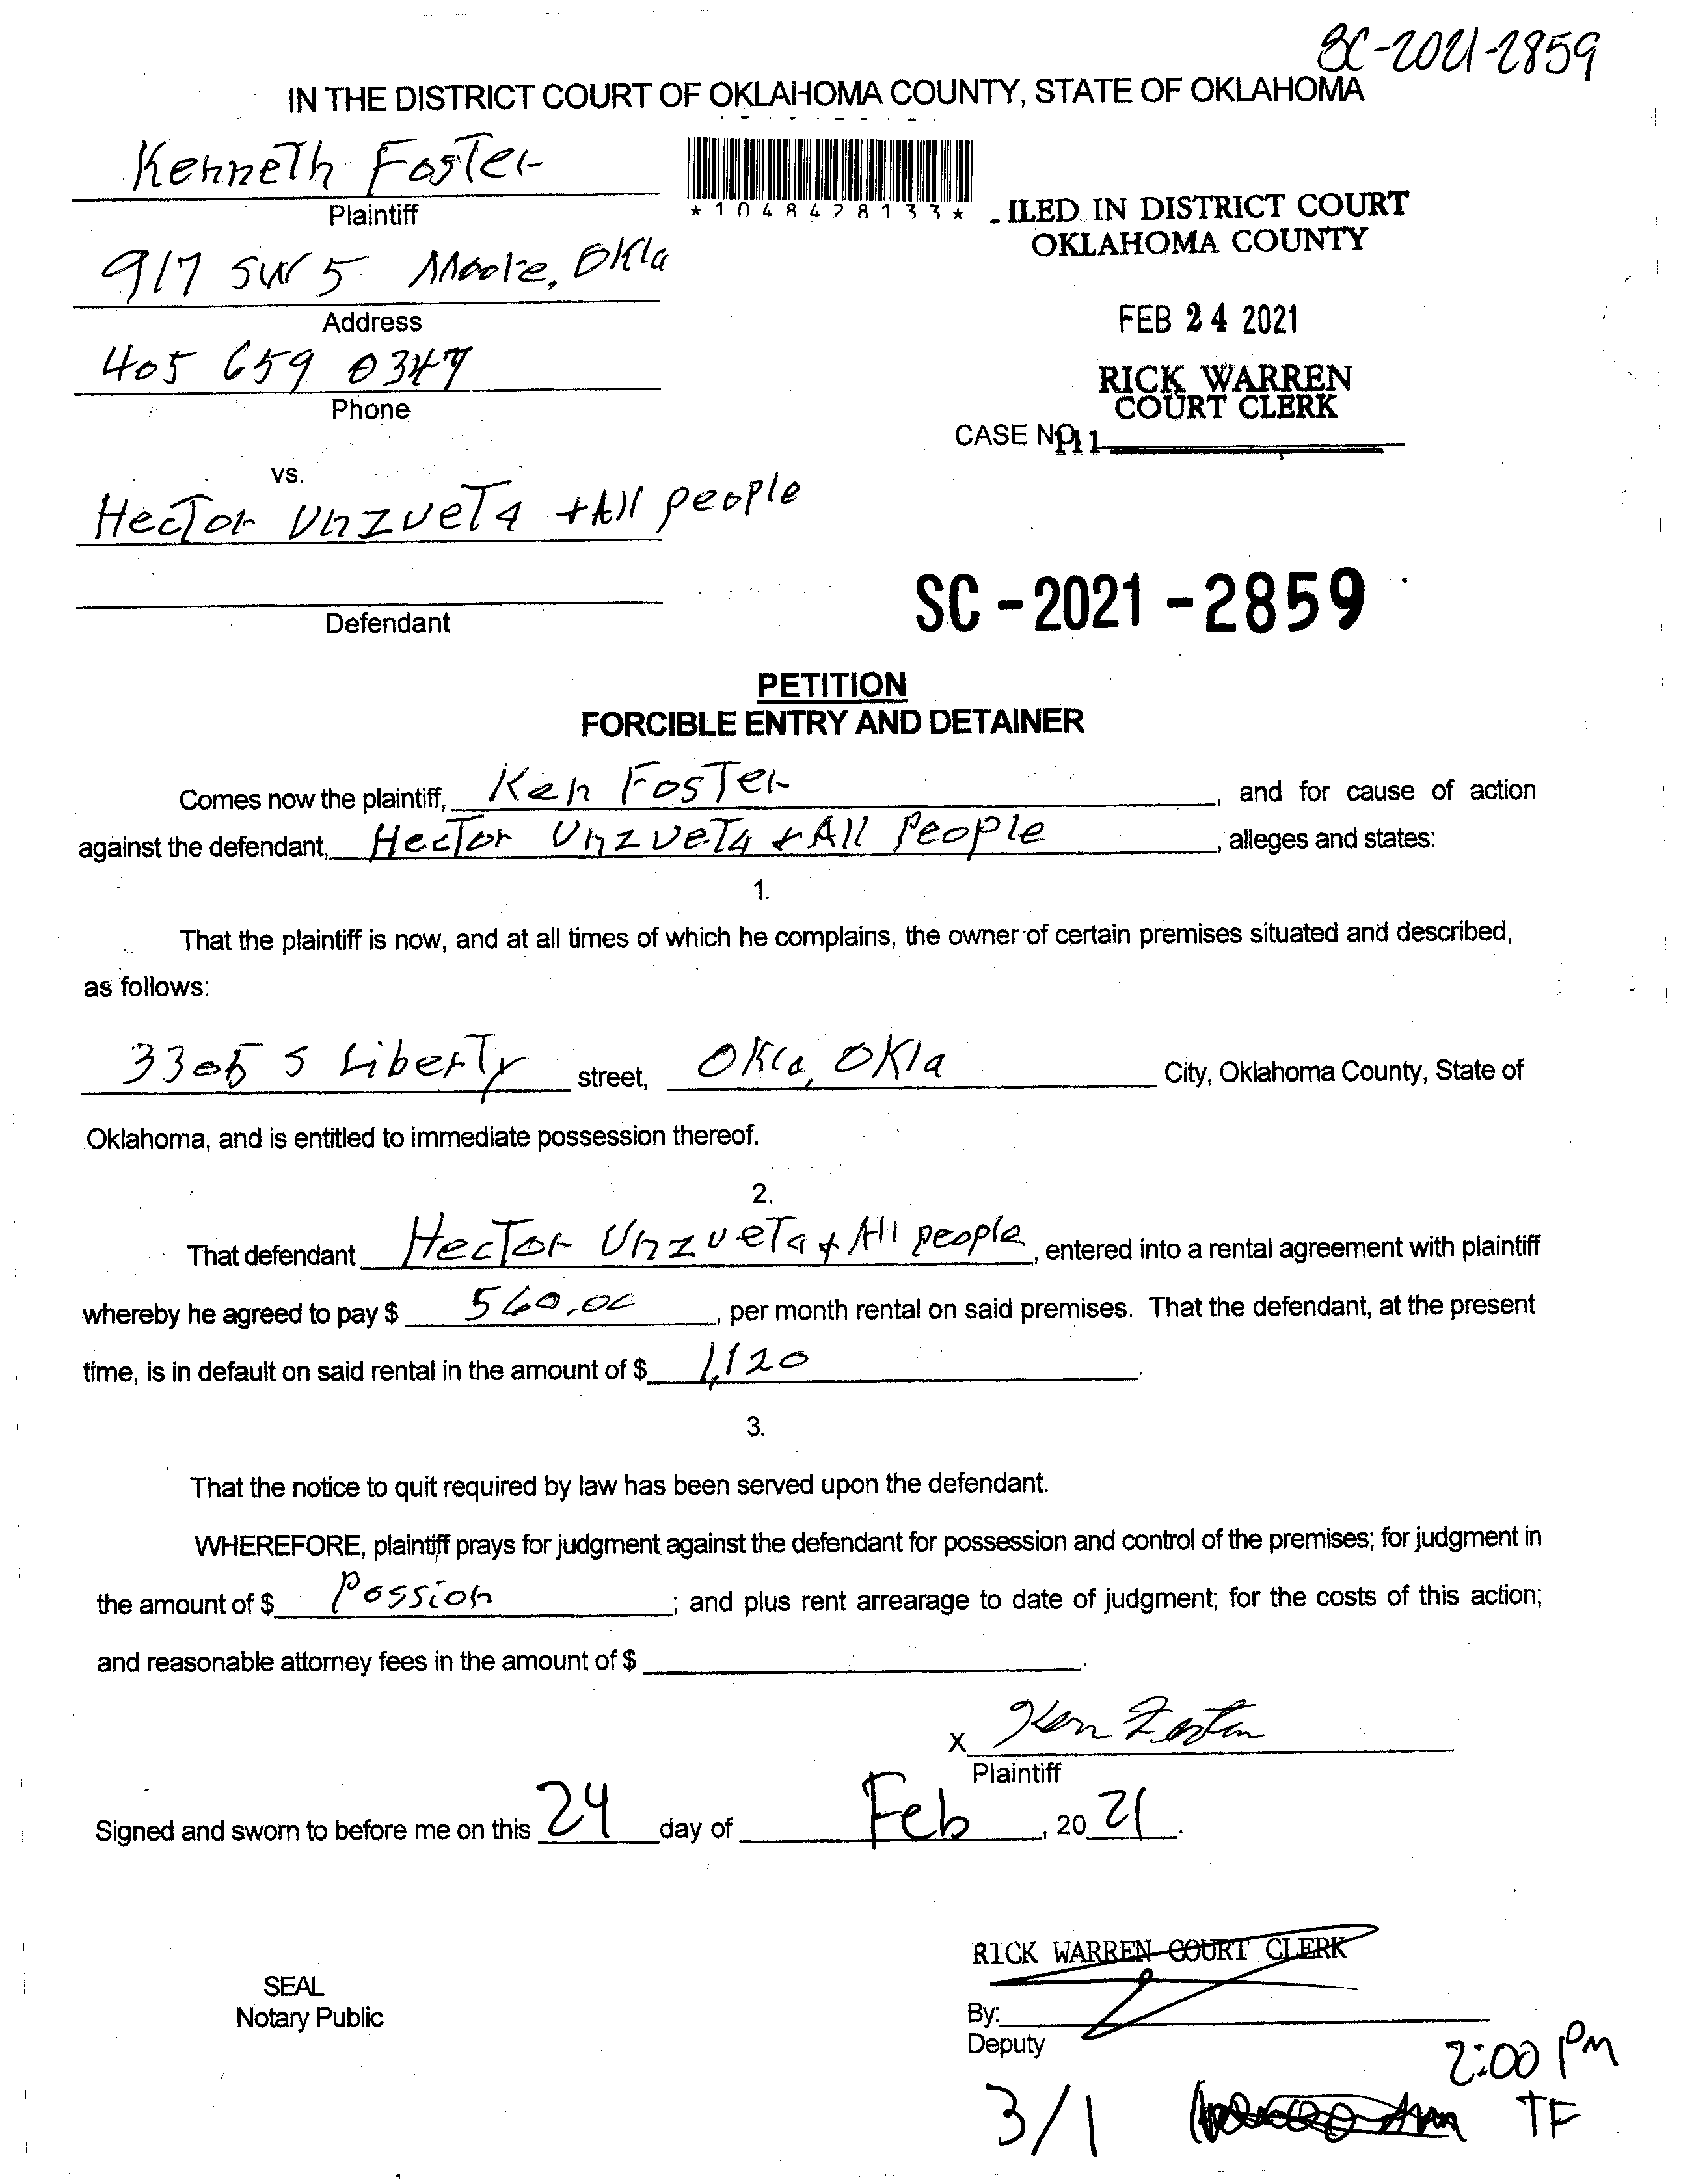 SC-2021-2859
IN THE DISTRICT COURT OF OKLAHOMA COUNTY, STATE OF OKLAHOMA
Kenneth Foster
Plaintiff
*1048428133*
ILED IN DISTRICT COURT
OKLAHOMA COUNTY
917 SW 5 Moore, Okla
Address
FEB 24 2021
405 659 0347
Phone
RICK WARREN
COURT CLERK
CASE NO.
vs.
Hector Unzueta + All people
Defendant
SC - 2021 - 2859
PETITION
FORCIBLE ENTRY AND DETAINER
Comes now the plaintiff, Ken Foster, and for cause of action
against the defendant, Hector Unzueta + All People, alleges and states:
1.
That the plaintiff is now, and at all times of which he complains, the owner of certain premises situated and described,
as follows:
3305 S Liberty street, Okla, Okla City, Oklahoma County, State of
Oklahoma, and is entitled to immediate possession thereof.
2.
That defendant Hector Unzueta + All people, entered into a rental agreement with plaintiff
whereby he agreed to pay $ 560.00, per month rental on said premises. That the defendant, at the present
time, is in default on said rental in the amount of $ 1,120.
3.
That the notice to quit required by law has been served upon the defendant.
WHEREFORE, plaintiff prays for judgment against the defendant for possession and control of the premises; for judgment in
the amount of $ Possion; and plus rent arrearage to date of judgment; for the costs of this action;
and reasonable attorney fees in the amount of $.
X Ken Foster
Plaintiff
Signed and sworn to before me on this 24 day of Feb, 20 21.
RICK WARREN COURT CLERK
SEAL
Notary Public
By:
Deputy
2:00 PM
3/1 TF